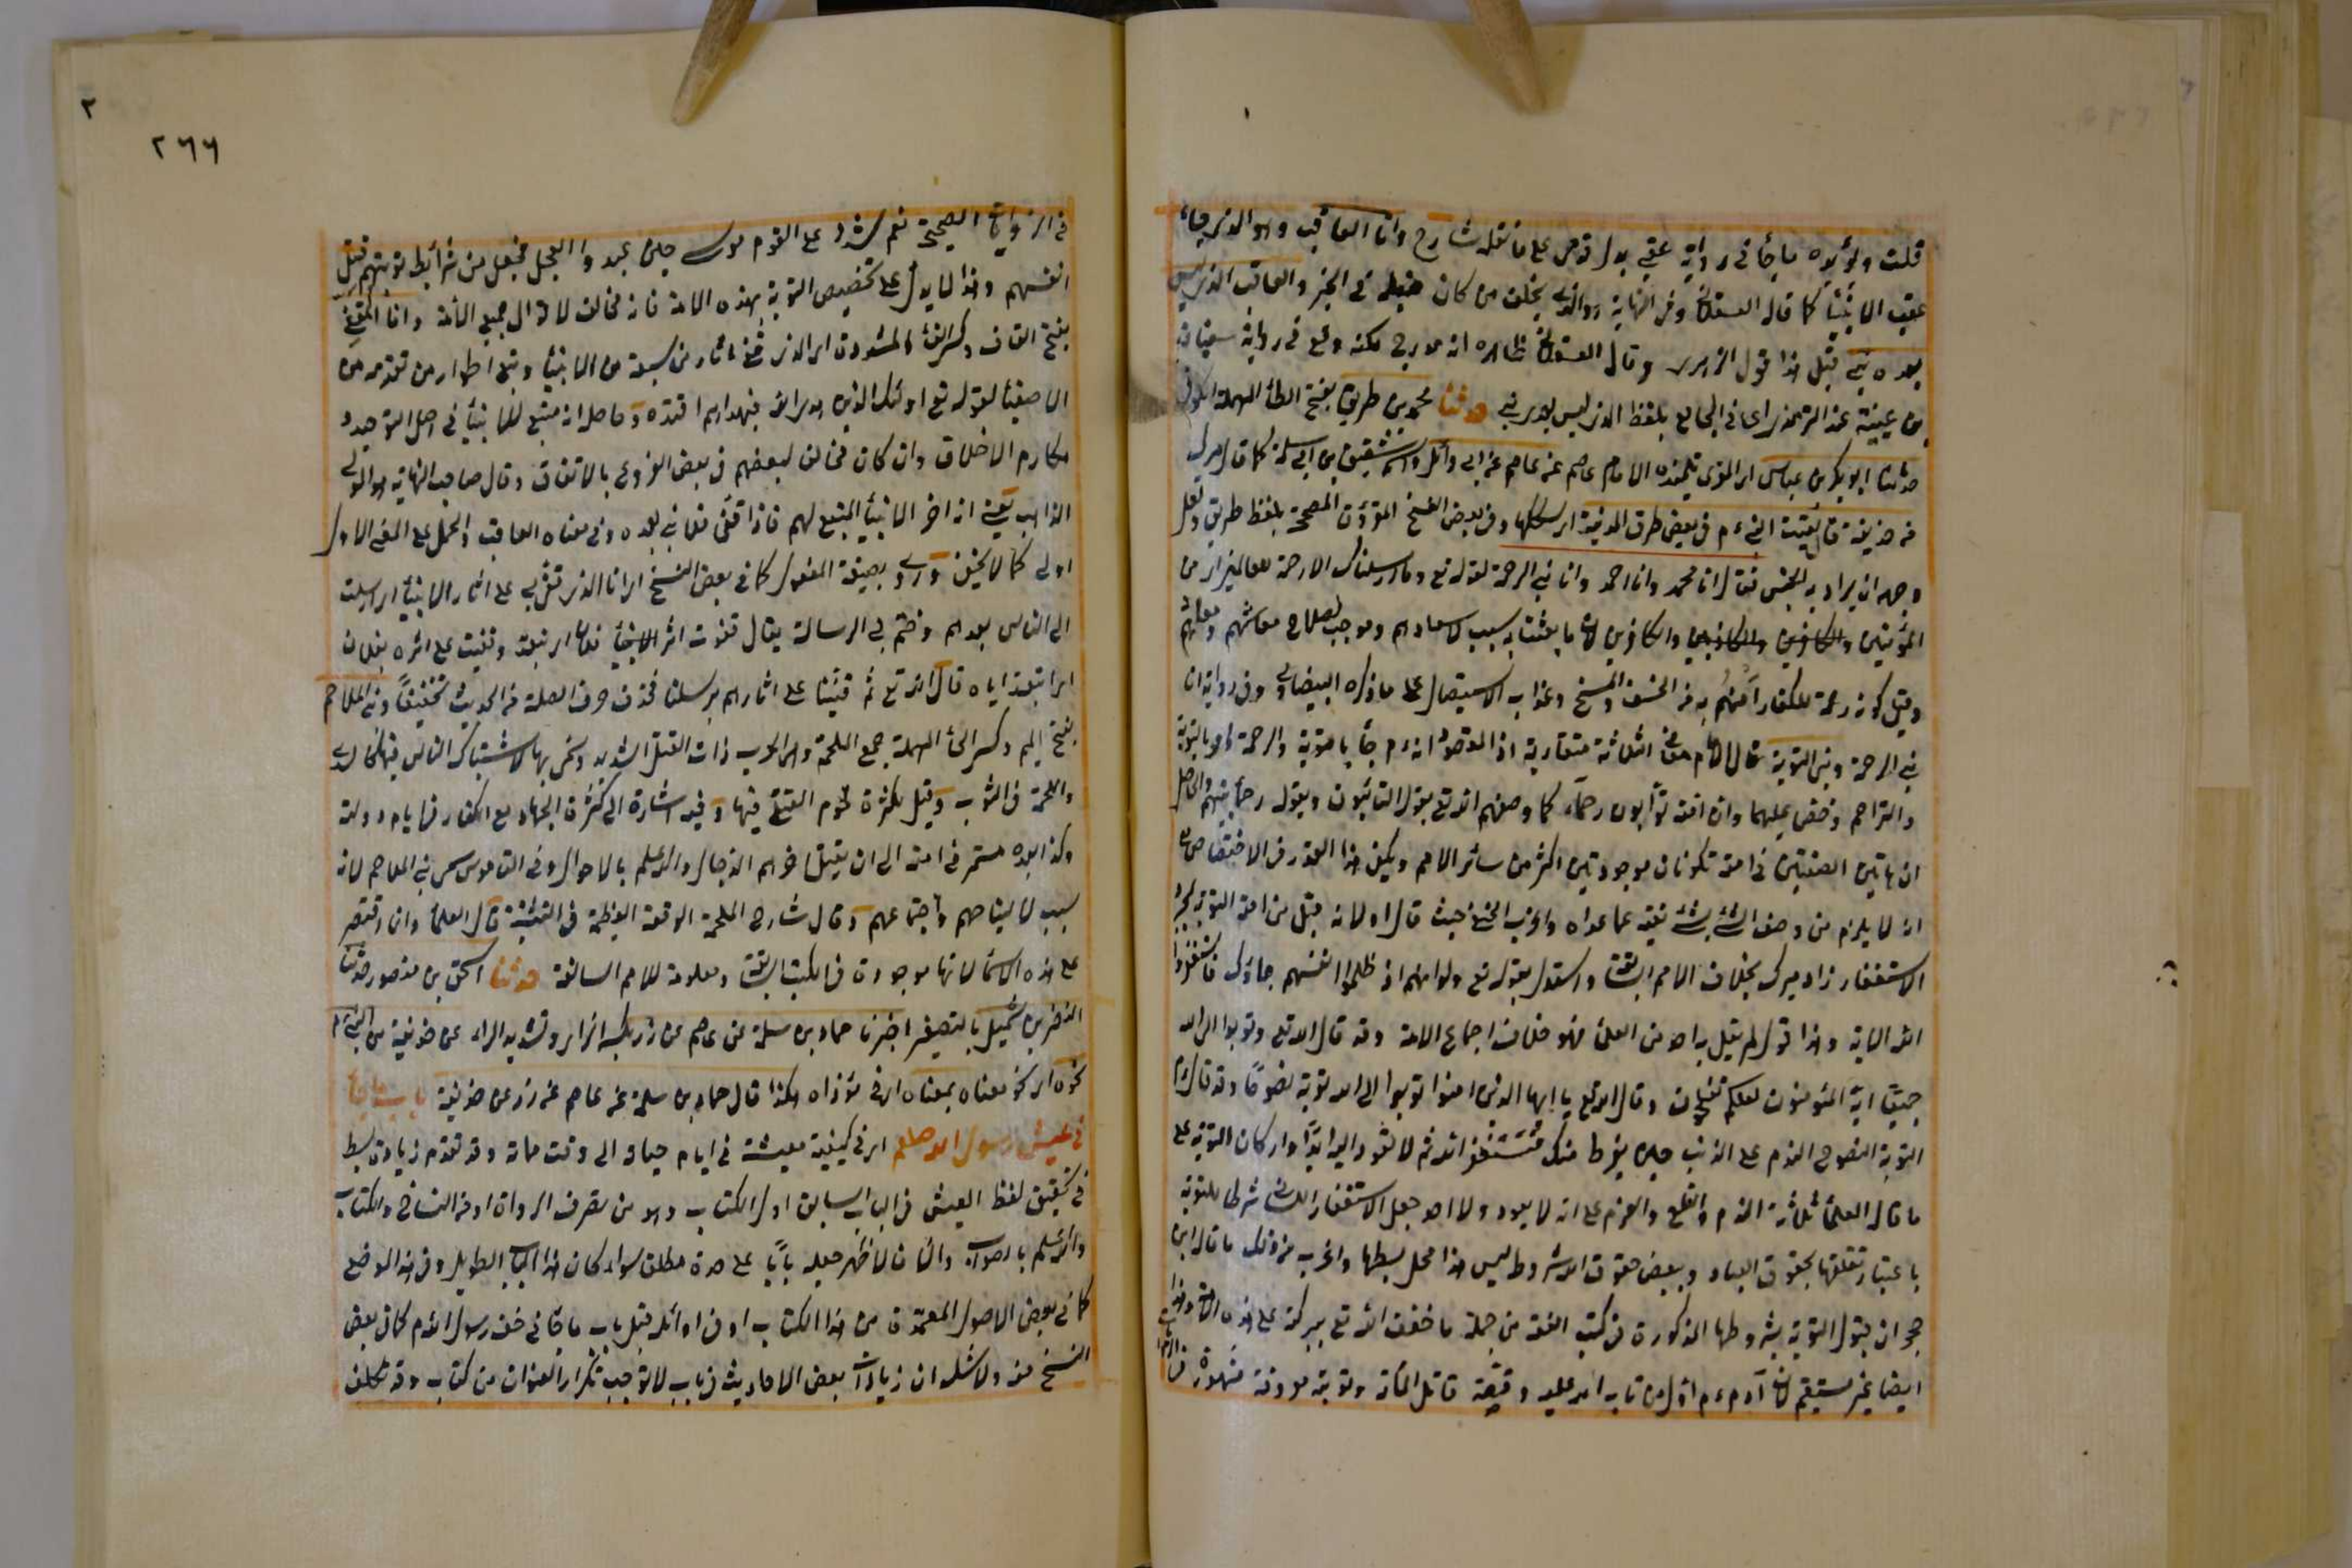 قلت ويؤيده ما جاء في رواية عقبي بدل قدمي على ما نقله شارح وانا العاقب وهو الذي جاء
عقب الانبياء كما قال العسقلاني وفي النهاية هو الذي يخلف من كان قبله في الخير والعاقب الذي ليس
بعده نبي قيل هذا قول الزهري وقال العسقلاني ظاهره انه مدرج لكنه وقع في رواية سفيان
بن عيينة عند الترمذي اي في الجامع بلفظ الذي ليس بعدي نبي حدثنا محمد بن طريف بفتح الطاء المهملة الكوفي
حدثنا ابو بكر بن عياش اي المقري تلميذ الامام عاصم عن عاصم عن ابي وائل واسمه شقيق بن ابي سلمة كما قال ميرك
عن حذيفة قال لقيت النبي م في بعض طرق المدينة اي سككها وفي بعض النسخ المقروءة المصححة بلفظ طريق ولعل
وجهه ان يراد به الجنس فقال انا محمد وانا احمد وانا نبي الرحمة لقوله تع وما ارسلناك الا رحمة للعالمين اي من
المؤمنين والكافرين لان ما بعثت به سبب لاسعادهم وموجب لصلاح معاشهم ومعادهم
وقيل كونه رحمة للكفار امنهم به من الخسف والمسخ وعذاب الاستيصال على ما ذكره البيضاوي وفي رواية انا
نبي الرحمة ونبي التوبة قال الامام معنى الثلاثة متقاربة اذ المقصود انه م جاء بالتوبة والرحمة وامر بالتوبة
والتراحم وحض عليهما وان امته توابون رحماء كما وصفهم الله تع بقوله التائبون وبقوله رحماء بينهم والحاصل
ان هاتين الصفتين في امته تكونان موجودتين اكثر من سائر الامم ويكفي هذا القدر في الاختصاص على
انه لا يلزم من وصف الشئ بشئ نفيه عما عداه واغرب الحنفي حيث قال اولا انه قبل من امته التوبة بمجرد
الاستغفار زاد ميرك بخلاف الامم السابقة واستدل بقوله تع ولو انهم اذ ظلموا انفسهم جاؤك فاستغفروا
الله الاية وهذا قول لم يقل به احد من العلماء فهو خلاف اجماع الامة وقد قال الله تع وتوبوا الى الله
جميعا ايه المؤمنون لعلكم تفلحون وقال الله تع يا ايها الذين امنوا توبوا الى الله توبة نصوحا وقد قال م
التوبة النصوح الندم على الذنب حين يفرط منك فتستغفر الله ثم لا تعود اليه ابدا واركان التوبة على
ما قال العلماء ثلاثة الندم والقلع والعزم على انه لا يعود ولا احد جعل الاستغفار اللساني شرطا للتوبة
باعتبار تعلقها بحقوق العباد وبعض حقوق الله شروط ليس هذا محل بسطها واغرب من ذلك ما قال ابن
حجر ان قبول التوبة بشروطها المذكورة في كتب الفقه من جملة ما خفف الله تع ببركته على هذه الامة وهذا
ايضا غير مستقيم لان آدم ء م اول من تاب الله عليه وقصة قاتل المائة وتوبته معروفة مشهورة
١
في الروايات الصحيحة نعم شدد على القوم موسى حين عبدوا العجل فجعل من شرائط توبتهم قتل
انفسهم وهذا لا يدل على تخصيص التوبة بهذه الامة فانه مخالف لاقوال جميع الائمة وانا المقفي
بفتح القاف وكسر الفاء المشددة اي الذي قفى آثار من سبقه من الانبياء وتبع اطوار من تقدمه من
الاصفياء لقوله تع اولئك الذين هدى الله فبهداهم اقتده وحاصله انه متبع للانبياء في اصل التوحيد و
مكارم الاخلاق وان كان مخالف لبعضهم في بعض الفروع بالاتفاق وقال صاحب النهاية هو المولي
الذاهب يعني انه اخر الانبياء المتبع لهم فاذا قفى فلا نبي بعده وفي معناه العاقب والحمل على المعنى الاول
اولى كما لا يخفى وروي بصيغة المفعول كما في بعض النسخ اي انا الذي قفي بي على اثار الانبياء اي ارسلت
الى الناس بعدهم وختم بي الرسالة يقال قفوت اثر فلان اي تبعته وقفيت على اثره بفلان
اي اتبعته اياه قال الله تع ثم قفينا على اثارهم برسلنا فحذف حرف الصلة في الحديث تخفيفا ونبي الملاحم
بفتح الميم وكسر الحاء المهملة جمع الملحمة وهي الحرب ذات القتل الشديد وسمي بها لاشتباك الناس فيها كالسدى
واللحمة في الثوب وقيل لكثرة لحوم القتلى فيها وفيه اشارة الى كثرة الجهاد مع الكفار في ايام دولته
وكذا بعده مستمر في امته الى ان يقتل اخرهم الدجال والله اعلم بالاحوال وفي القاموس سمي نبي الملاحم لانه
سبب لالتيامهم واجتماعهم وقال شارح الملحمة الوقعة العظيمة في الفتنة قال العلماء وانما اقتصر
على هذه الاسماء لانها موجودة في الكتب السابقة ومعلومة للامم السالفة حدثنا اسحق بن منصور حدثنا
النضر بن شميل بالتصغير اخبرنا حماد بن سلمة عن عاصم عن زر بكسر الزاي وتشديد الراء عن حذيفة عن النبي م
نحوه اي نحو معناه بمعناه اي في مؤداه هكذا قال حماد بن سلمة عن عاصم عن زر عن حذيفة باب ما جاء
في عيش رسول الله صلعم اي في كيفية معيشته في ايام حياته الى وقت مماته وقد تقدم زيادة بسط
في تحقيق لفظ العيش في الباب السابق اول الكتاب وهو من تصرف الرواة او من النساخ والكتاب
والله اعلم بالصواب والا كان لا ظهر جعله بابا على حدة مطلقا سواء كان هذا الباب الطويل وفي هذا الموضع
كما في بعض الاصول المعتمدة من هذا الكتاب او في اوائله قبل باب ما جاء في خف رسول الله م كما في بعض
النسخ منه ولا شك ان زيادة بعض الاحاديث في باب لا توجب تكرار العنوان من كتاب وقد تكلف
٢٦٦
٢